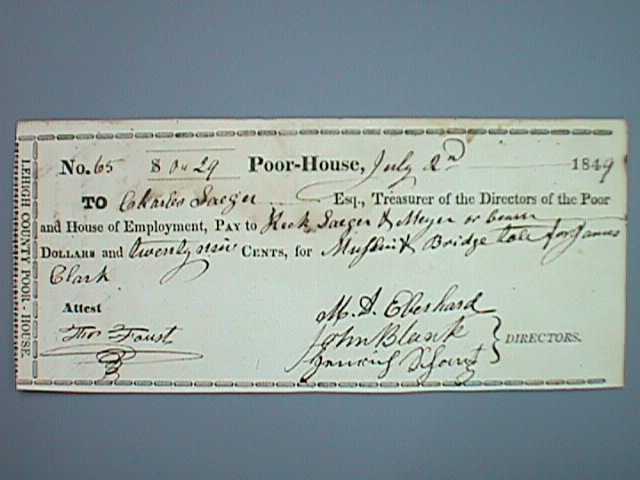 LEHIGH COUNTY POOR-HOUSE.
No. 65 $ 0 " 29 Poor-House, July 2d 1849
TO Charles Saeger Esq., Treasurer of the Directors of the Poor
and House of Employment, PAY to Keck Saeger & Meyer or bearer
DOLLARS and twenty nine CENTS, for Muslin & Bridge tole for James
Clark
Attest
Thos Faust
M. D. Eberhard
John Blank
DIRECTORS.